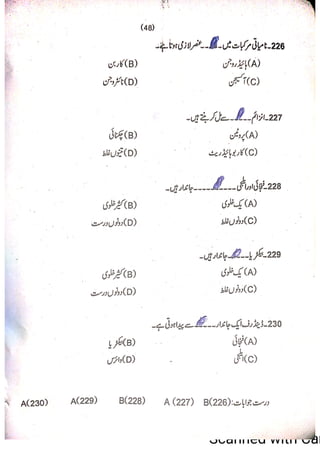 (46)
226۔ نامیاتی مرکبات میں ۔۔۔ عنصر لازمی ہوتا ہے۔
(A) ہائیڈروجن (B) کاربن
(C) آکسیجن (D) نائٹروجن
227۔ انزائم ۔۔۔ سے مل کر بنتے ہیں۔
(A) پروٹین (B) چکنائی
(C) کاربوہائیڈریٹ (D) تینوں غلط
228۔ فنجائی اور الجی ۔۔۔۔۔۔ جاندار ہیں۔
(A) یک خلوی (B) کثیر خلوی
(C) دونوں غلط (D) دونوں درست
229۔ بیکٹریا ۔۔۔ جاندار ہیں۔
(A) یک خلوی (B) کثیر خلوی
(C) دونوں غلط (D) دونوں درست
230۔ ڈینڈرف ایک جاندار ۔۔۔ سے پیدا ہوتی ہے۔
(A) فنجائی (B) بیکٹریا
(C) الجی (D) وائرس
درست جوابات: B(226) A (227) B(228) A(229) A(230)
Scanned with Ca